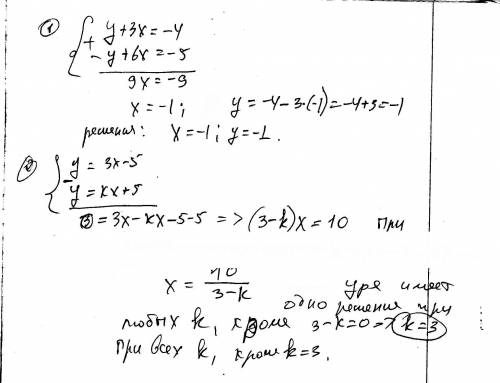 ① { + y+3x=-4
-y+6x=-5
9x=-9
x=-1; y=-4-3·(-1)=-4+3=-1
решения: x=-1; y=-1.
② { - y=3x-5
y=kx+5
0=3x-kx-5-5 => (3-k)x=10 при
x = 10/(3-k) ур-е имеет
одно решения при
любых k, кроме 3-k=0 => k=3
При всех k, кроме k=3.